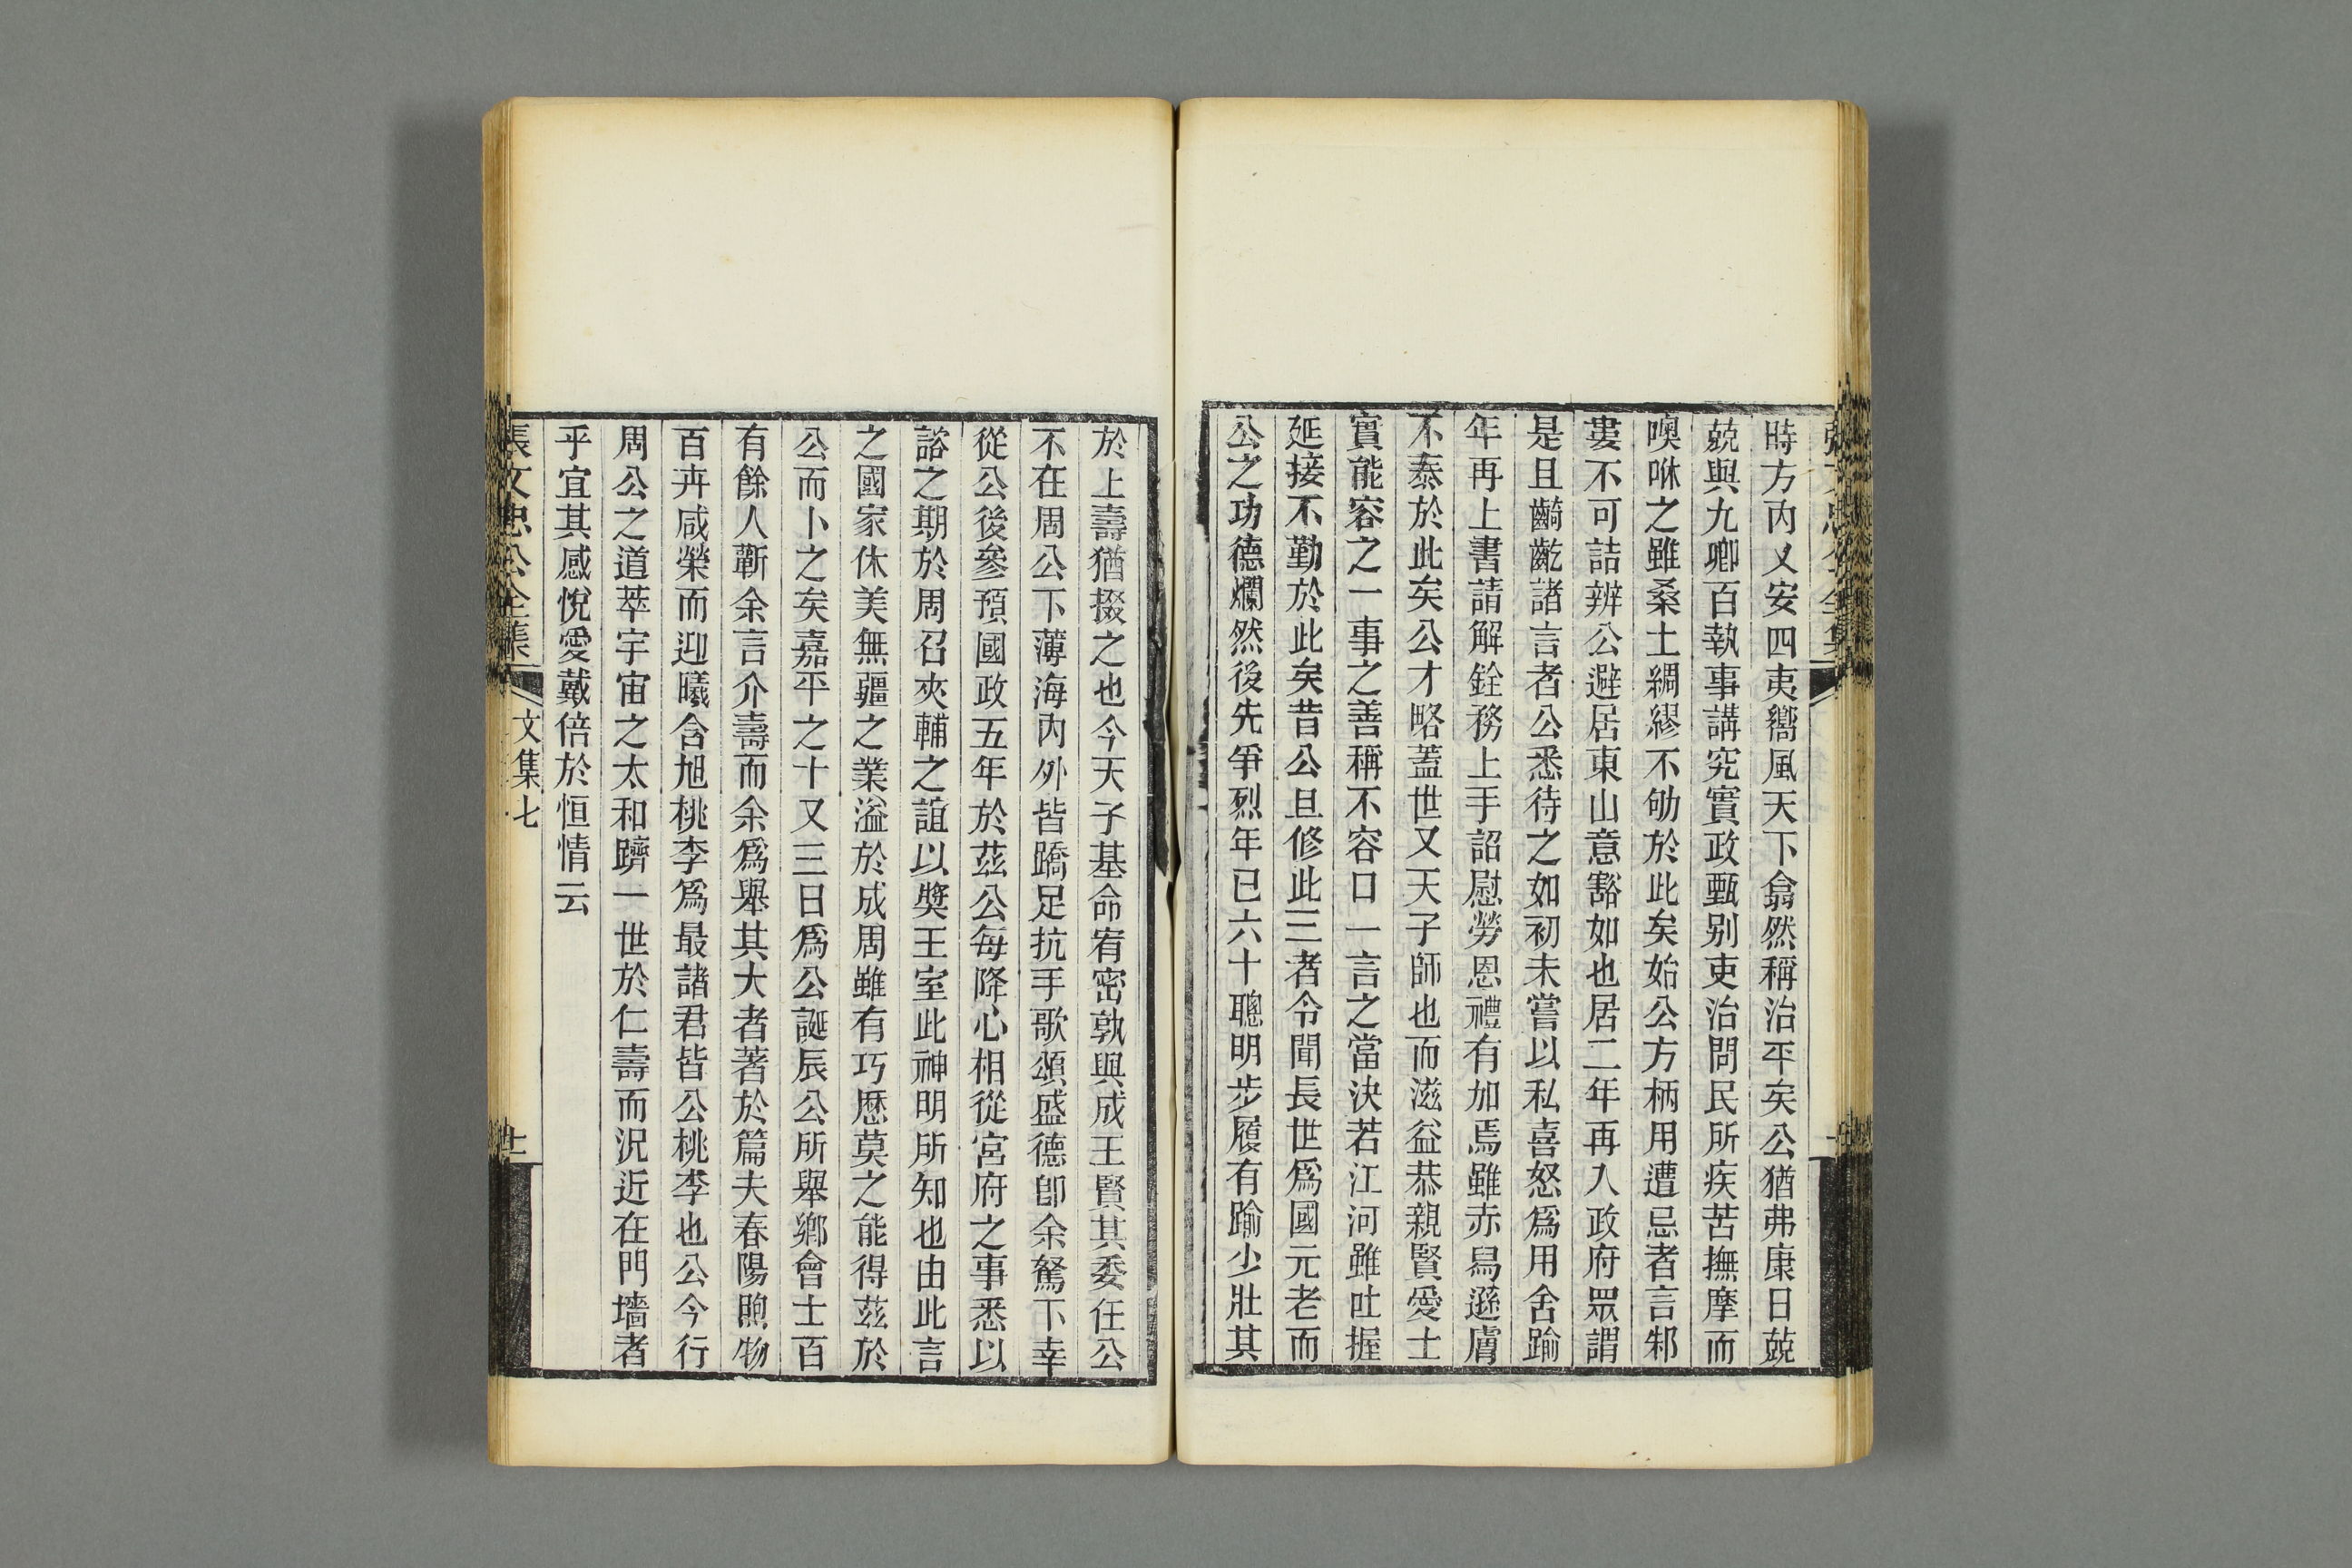 時方內乂安四夷嚮風天下翕然稱治平矣公猶弗康日兢
兢與九卿百執事講究實政甄別吏治問民所疾苦撫摩而
噢咻之雖桑土綢繆不劬於此矣始公方柄用遭忌者言邾
婁不可詰辨公避居東山意豁如也居二年再入政府眾謂
是且齮齕諸言者公悉待之如初未嘗以私喜怒爲用舍踰
年再上書請解銓務上手詔慰勞恩禮有加焉雖赤舄遜膚
不泰於此矣公才略蓋世又天子師也而滋益恭親賢愛士
實能容之一事之善稱不容口一言之當決若江河雖吐握
延接不勤於此矣昔公旦修此三者令聞長世爲國元老而
公之功德爛然後先爭烈年已六十聰明步履有踰少壯其
於上壽猶掇之也今天子基命宥密孰與成王賢其委任公
不在周公下薄海內外皆蹻足抗手歌頌盛德卽余駑下幸
從公後參預國政五年於茲公每降心相從宮府之事悉以
諮之期於周召夾輔之誼以獎王室此神明所知也由此言
之國家休美無疆之業溢於成周雖有巧歷莫之能得茲於
公而卜之矣嘉平之十又三日爲公誕辰公所舉鄉會士百
有餘人蘄余言介壽而余爲舉其大者著於篇夫春陽煦物
百卉咸榮而迎曦含旭桃李爲最諸君皆公桃李也公今行
周公之道萃宇宙之太和躋一世於仁壽而況近在門墻者
乎宜其感悅愛戴倍於恒情云
張文忠公全集
文集七